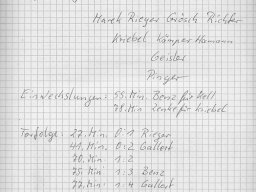 Marek Rieger Grösch Richter
Kniebel Kämper Hamann
Geisler
Pinger
Einwechslungen: 55. Min. Benz für Kell
78. Min. Zenke für Kniebel
Torfolge: 27. Min. 0:1 Rieger
41. Min. 0:2 Gallert
70. Min 1:2
75. Min 1:3 Benz
77. Min. 1:4 Gallert